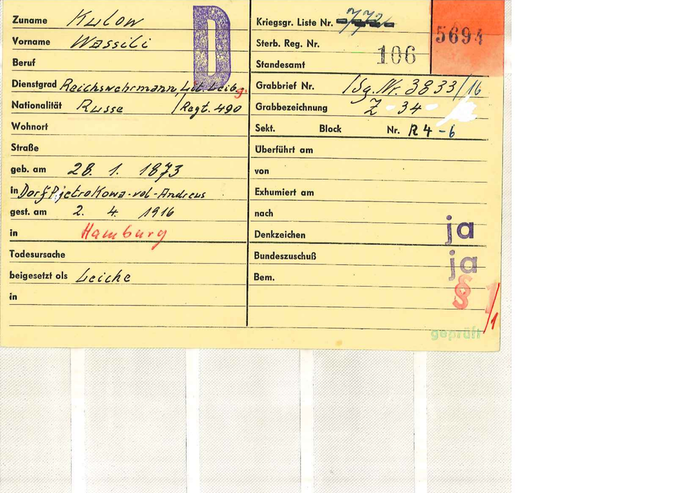 Zuname Kulow
Vorname Wassili
Beruf
D
Dienstgrad Reichswehrmann,
Nationalität Russe / Regt. 490
Wohnort
Straße
geb. am 28. 1. 1873
in Dorf
gest. am 2. 4. 1916
in Hamburg
Todesursache
beigesetzt als Leiche
in
Kriegsgr. Liste Nr.
5694
Sterb. Reg. Nr.
106
Standesamt
Grabbrief Nr. /Sg. Nr. 3833/16
Grabbezeichnung Z - 34 -
Sekt. Block Nr. R 4 - 6
Überführt am
von
Exhumiert am
nach
Denkzeichen ja
Bundeszuschuß ja
Bem. §
1/1
geprüft